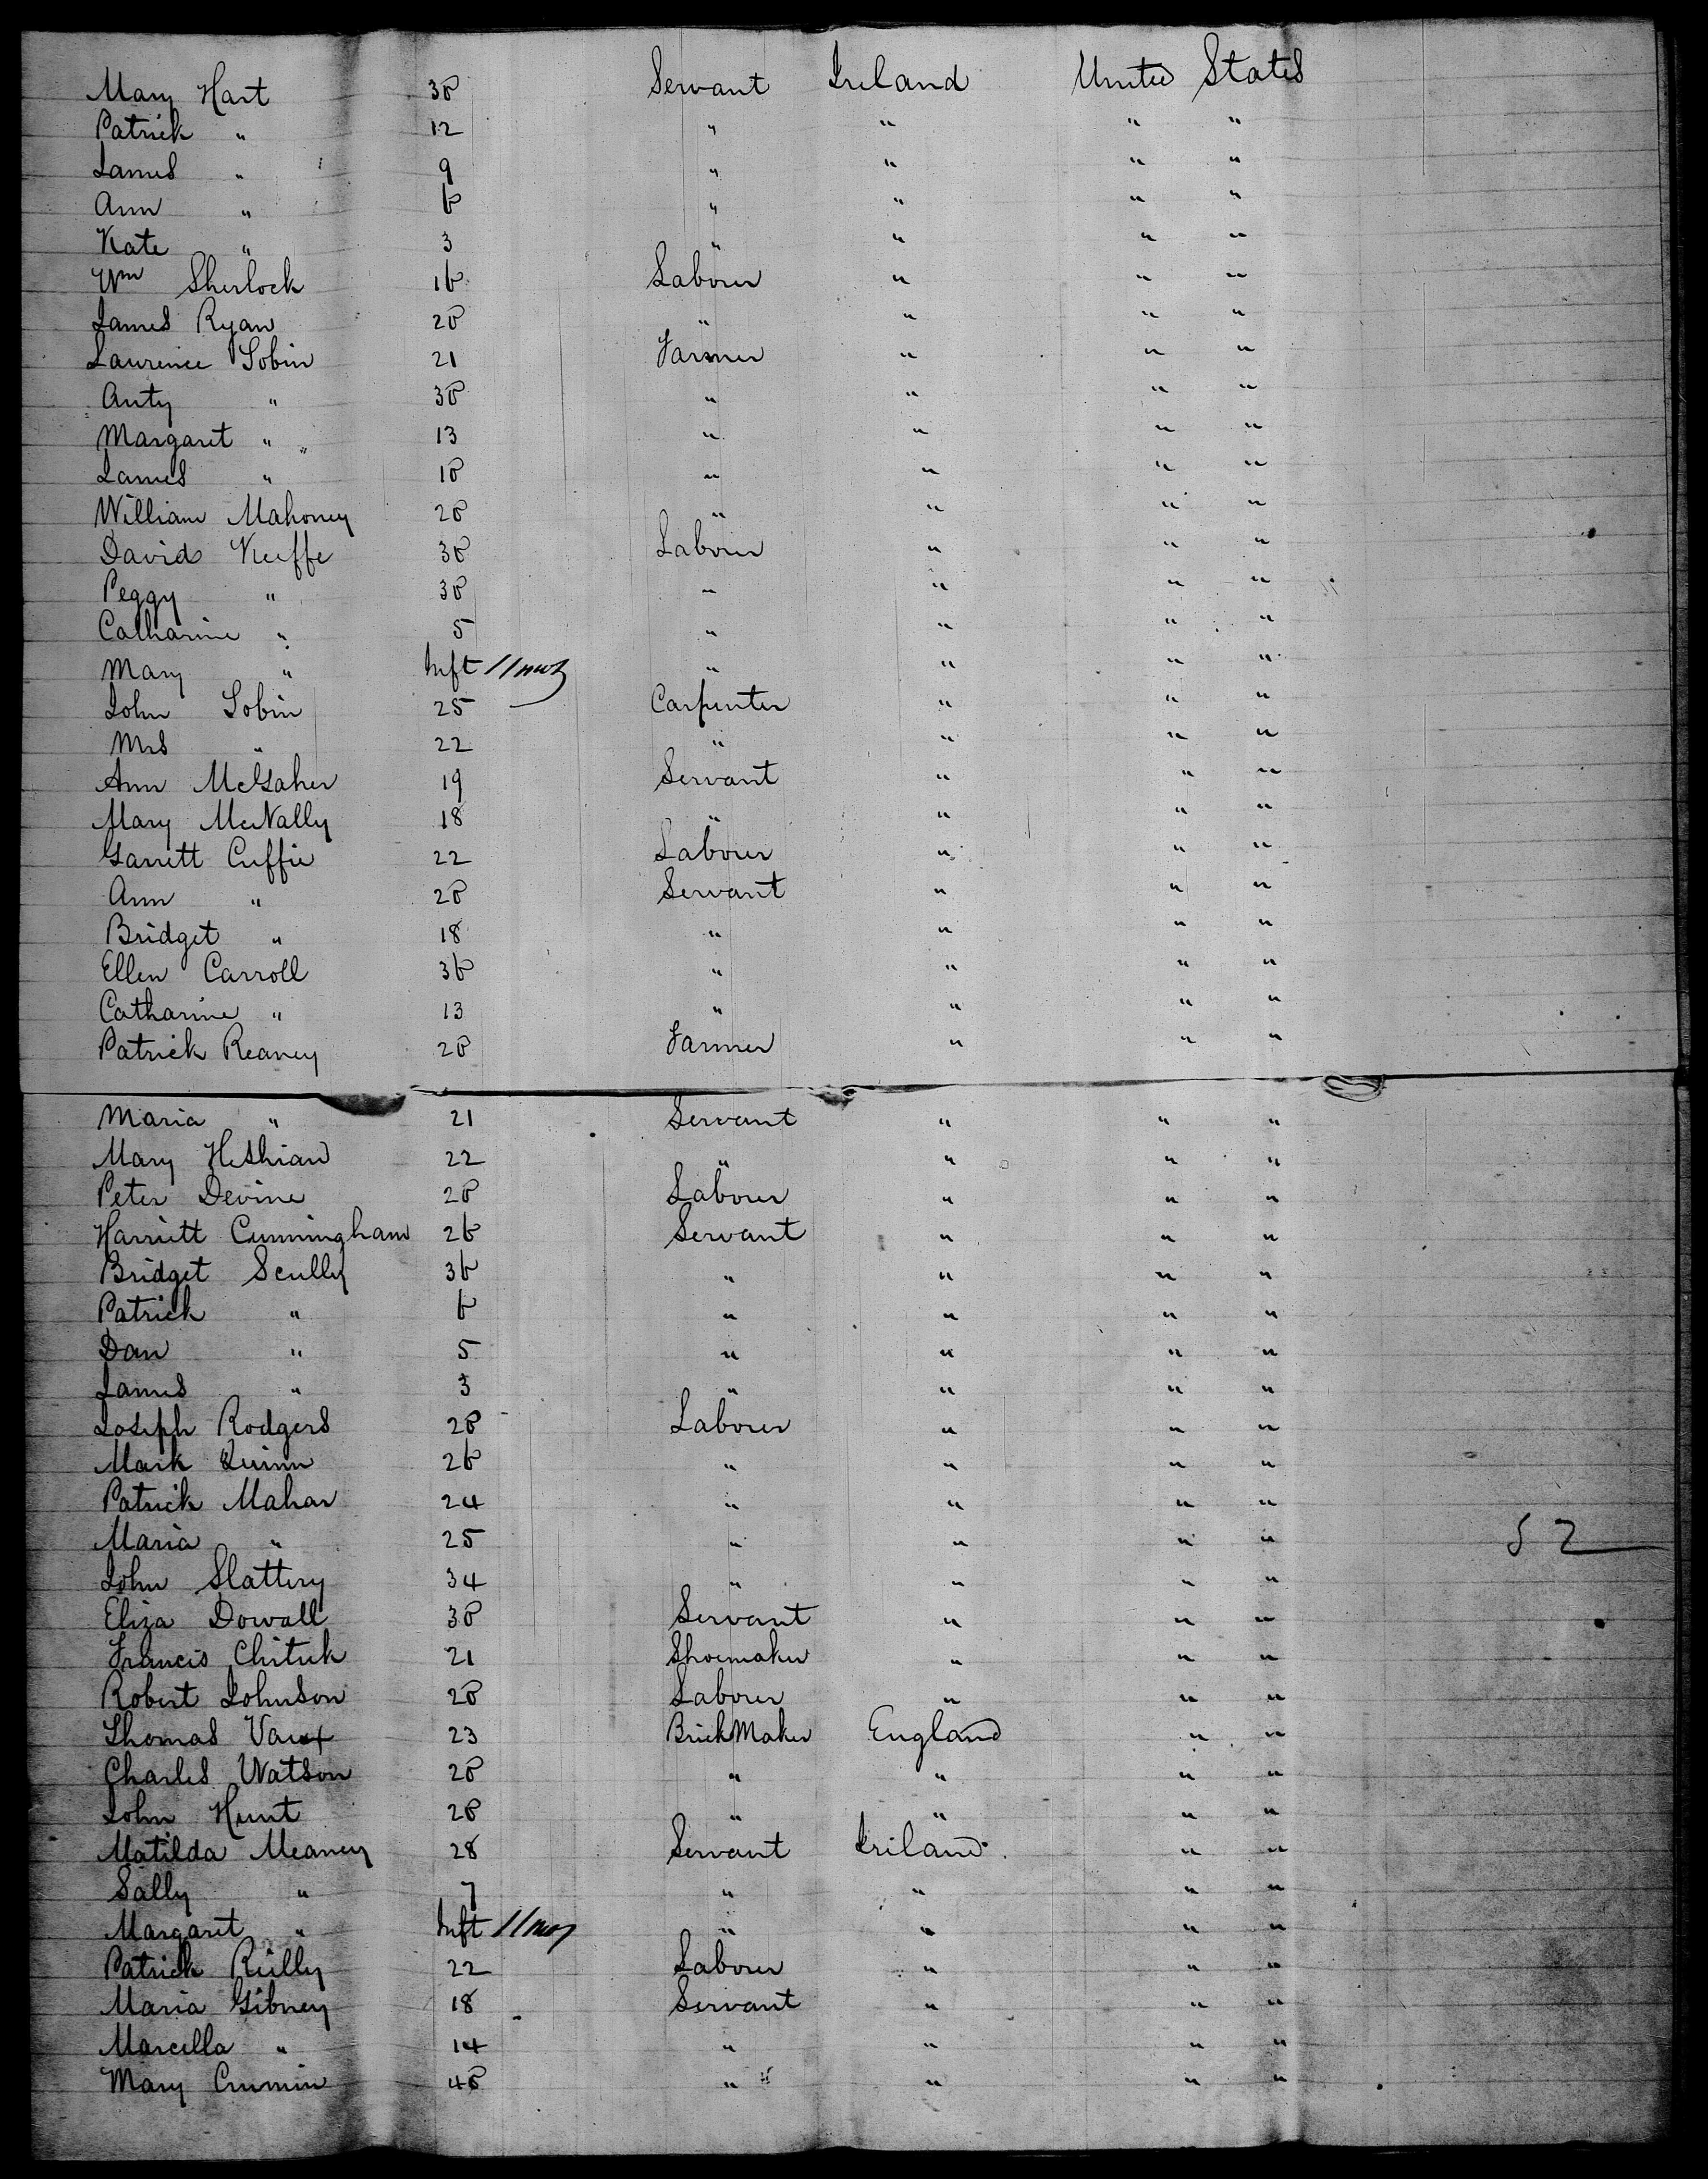 Mary Hart 30 Servant Ireland United States
Patrick " 12 " " " "
James " 9 " " " "
Ann " 6 " " " "
Kate " 3 " " " "
Wm Sherlock 16 Labourer " " "
James Ryan 20 " " " "
Laurence Tobin 21 Farmer " " "
Anty " 30 " " " "
Margaret " 13 " " " "
James " 10 " " " "
William Mahoney 20 " " " "
David Keeffe 30 Labourer " " "
Peggy " 30 " " " "
Catharine " 5 " " " "
Mary " Inft 11 mos " " " "
John Tobin 25 Carpenter " " "
Mrs " 22 " " " "
Ann McGaher 19 Servant " " "
Mary McNally 18 " " " "
Garrett Cuffie 22 Labourer " " "
Ann " 20 Servant " " "
Bridget " 18 " " " "
Ellen Carroll 36 " " " "
Catharine " 13 " " " "
Patrick Reaney 20 Farmer " " "
Maria " 21 Servant " " "
Mary 22 " " " "
Peter Devine 20 Labourer " " "
Harriett Cunningham 26 Servant " " "
Bridget Scully 36 " " " "
Patrick " 6 " " " "
Dan " 5 " " " "
James " 3 " " " "
Joseph Rodgers 20 Labourer " " "
Mark Quinn 26 " " " "
Patrick Mahar 24 " " " "
Maria " 25 " " " "
52
John Slattery 34 " " " "
Eliza Dowall 30 Servant " " "
Francis Chituk 21 Shoemaker " " "
Robert Johnson 20 Labourer " " "
Thomas Vaux 23 Brick Maker England " "
Charles Watson 20 " " " "
John Hunt 20 " " " "
Matilda Meaney 28 Servant Ireland " "
Sally " 7 " " " "
Margaret " Inft 11 mos " " " "
Patrick Reilly 22 Labourer " " "
Maria Gibney 18 Servant " " "
Marcella " 14 " " " "
Mary Crumin 40 " " " "